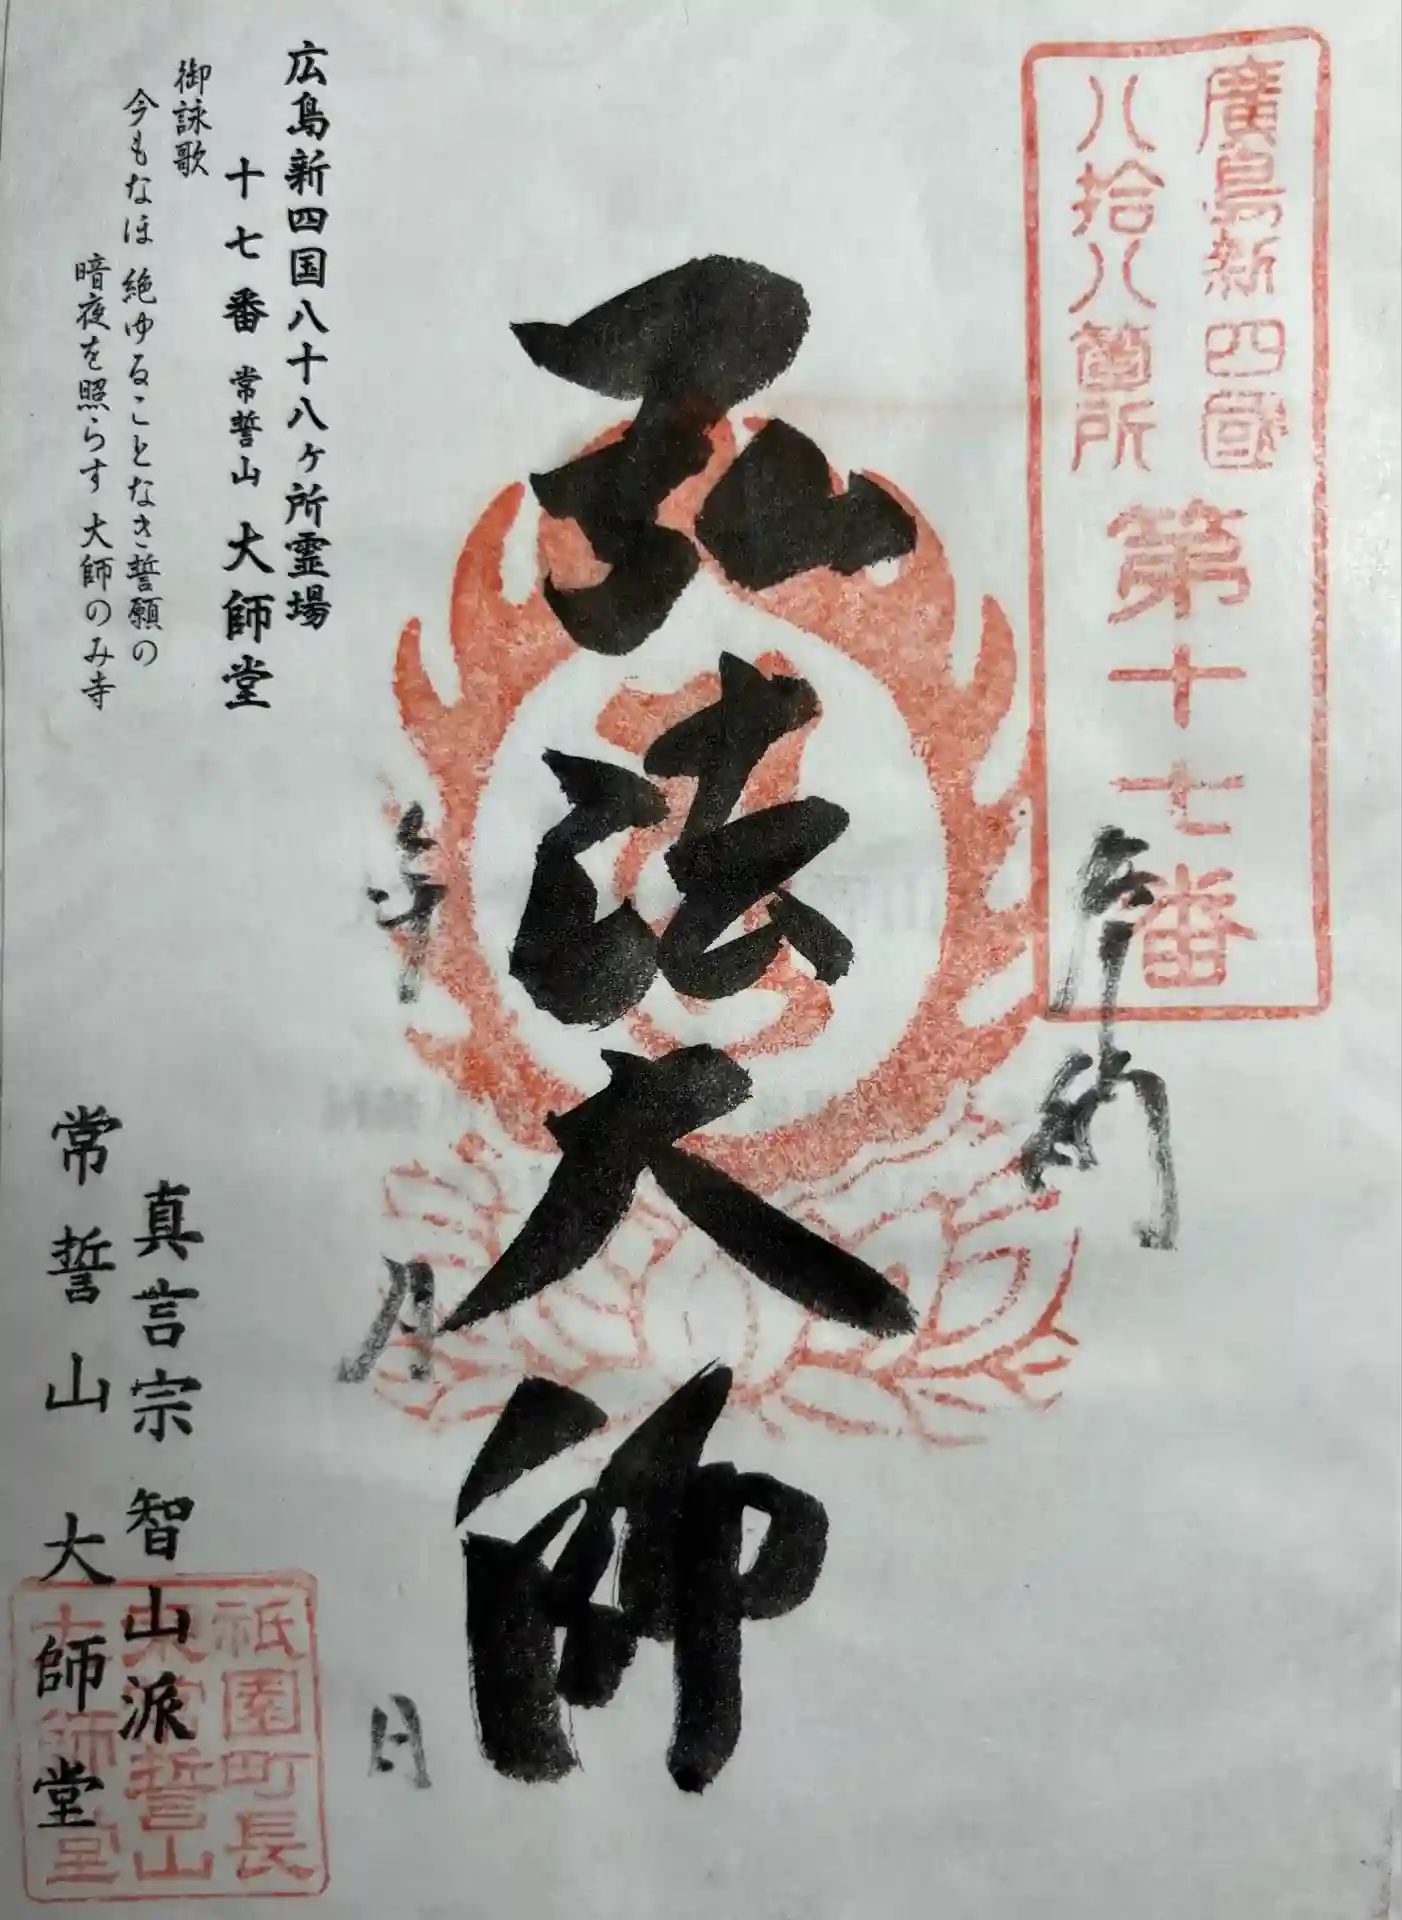 廣島新四國
八拾八箇所
第十七番
奉納
弘法大師
年 月 日
広島新四国八十八ヶ所霊場
十七番 常誓山 大師堂
御詠歌
今もなほ 絶ゆることなき誓願の
暗夜を照らす 大師のみ寺
真言宗 智山派
常誓山 大師堂
祇園町長
束常誓山
大師堂